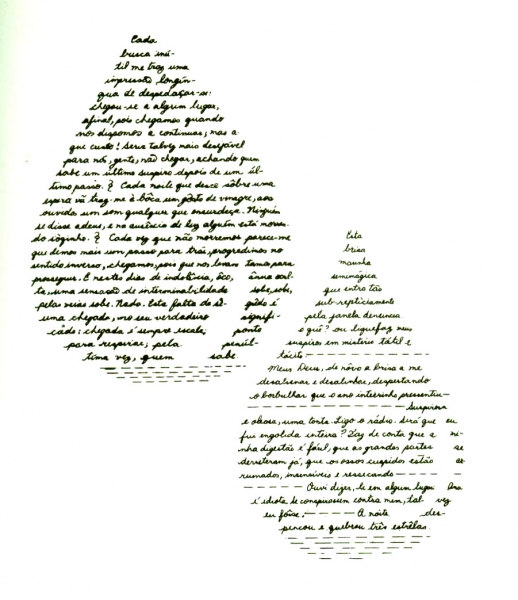 Cada
busca inú-
til me traz uma
impressão longín-
qua de despedaçar-se:
chegou-se a algum lugar,
afinal, pois chegamos quando
nos dispomos a continuar, mas a
que custo! Seria talvez mais desejável
para nós, gente, não chegar, achando quem
sabe um último suspiro depois de um úl-
timo passo. & Cada noite que desce sôbre uma
espera vã traz-me à bôca um gôsto de vinagre, aos
ouvidos um som qualquer que ensurdeça. Ninguém
se disse adeus, e na ausência de luz alguém está morren-
do sòzinho. & Cada vez que não morremos parece-me
que demos mais um passo para trás, progredimos no
sentido inverso, chegamos, pois que nos levam tanto para
prosseguir. E nestes dias de indolência, ôco,
ta, uma sensação de interminabilidade sobe, sobe,
pelas veias sobe. Nado. Esta falta de si-
uma chegada, no seu verdadeiro signifi-
cado: chegada é sempre escala, ponto
para respirar, pela penúl-
tima vez, quem sabe
Esta
brisa
mansinha
semimágica
que entra tão
sub-repticiamente
pela janela denuncia
o quê? ou liquefaz meus
suspiros em mistério tátil e
tácito.
Meus Deus, de nôvo a brisa a me
desatinar e desalinhar, despertando
o borbulhar que o ano inteirinho pressentiu
Suspirosa
e oleosa, uma torta. Ligo o rádio. Será que eu
fui engolida inteira? Faz de conta que a mi-
nha digestão é fácil, que as grandes partes se
derreteram já, que os ossos cuspidos estão ar-
rumados, insensíveis e ressecando
Ouvi dizer, li em algum lugar. Ora
é idiota se conspirassem contra mim, tal vez
eu fôsse. A noite des-
pencou e quebrou três estrêlas.